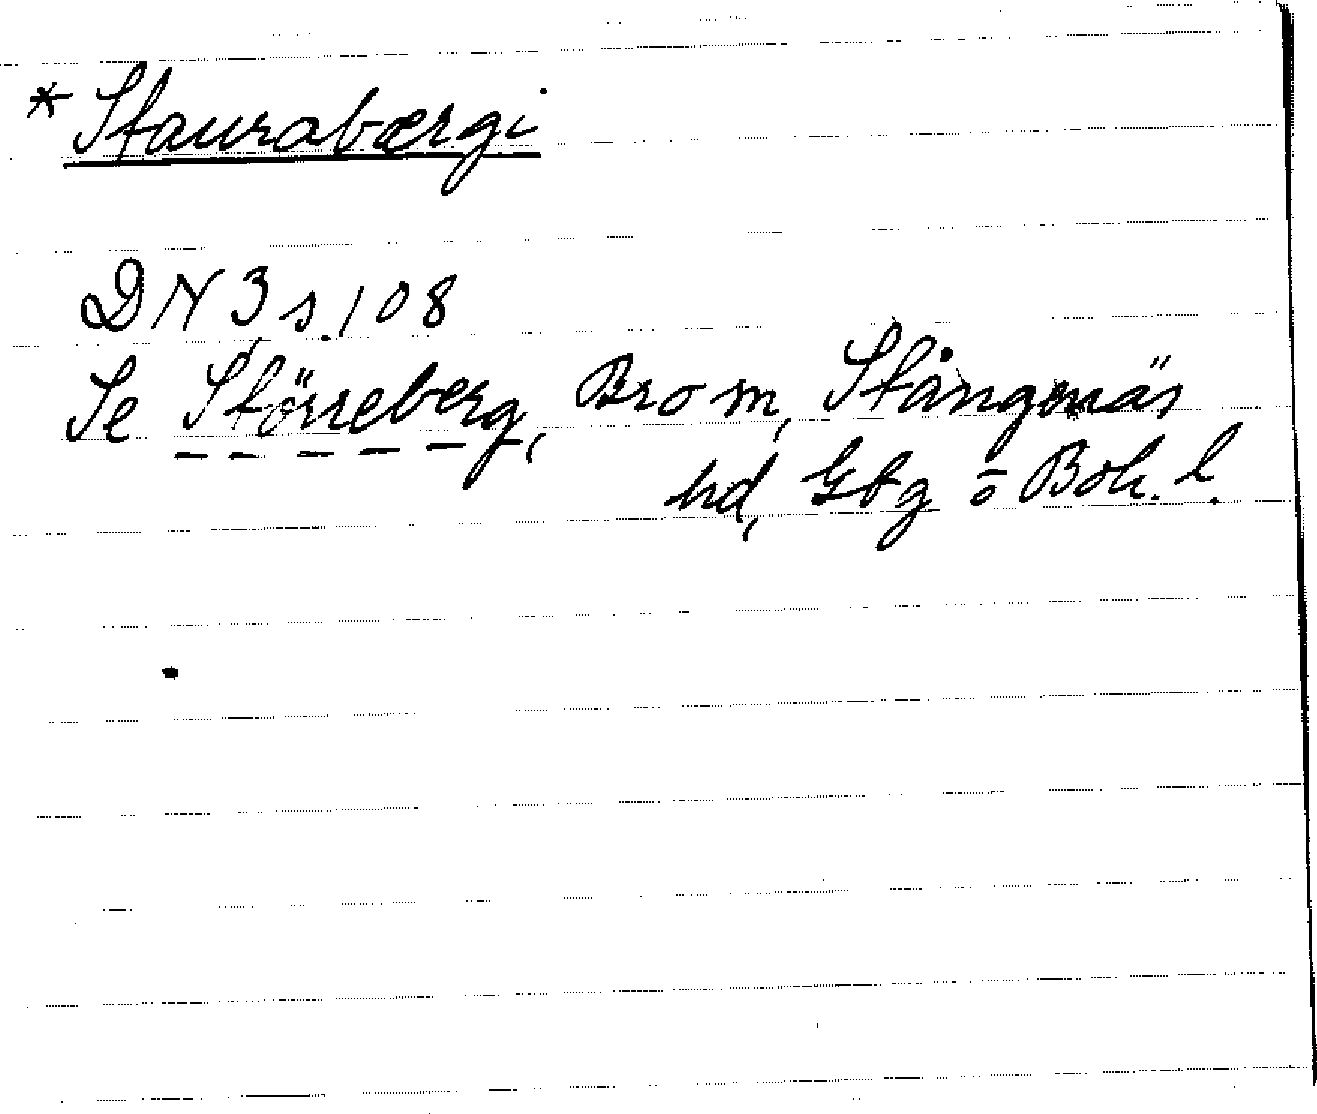 *Staurabærgi
DN 3 s. 108
Se Störreberg, Bro sn, Stångenäs
hd, Gbg o Boh. l.